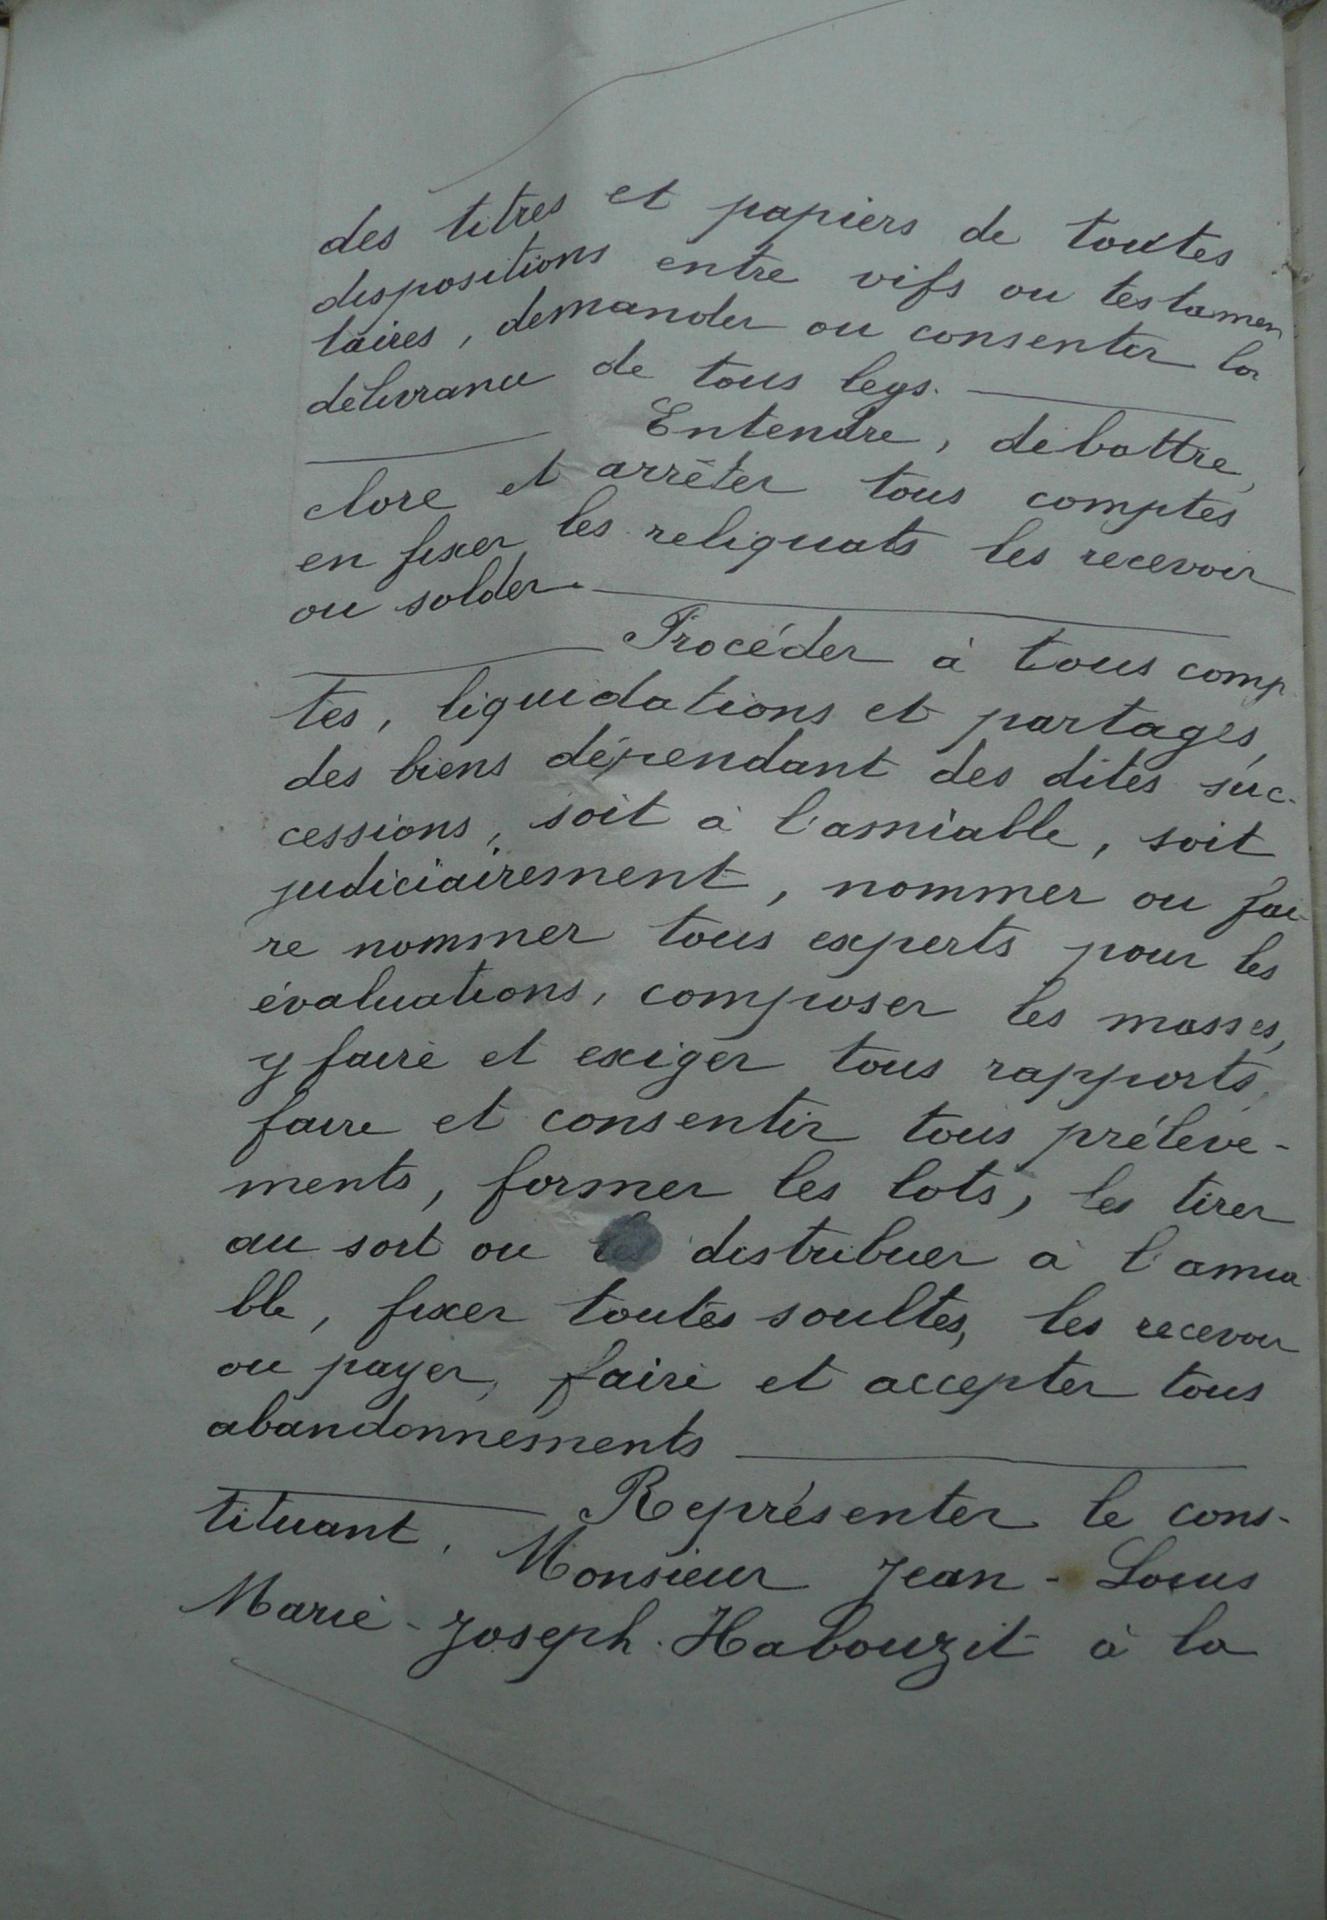 des titres et papiers de toutes
dispositions entre vifs ou testamen
taires, demander ou consentir la
délivrance de tous legs.
Entendre, débattre,
clore et arrêter tous comptes
en fixer les reliquats les recevoir
ou solder.
Procéder à tous comp
tes, liquidations et partages,
des biens dépendant des dites suc-
cessions, soit à l'amiable, soit
judiciairement, nommer ou fai-
re nommer tous experts pour les
évaluations, composer les masses,
y faire et exiger tous rapports,
faire et consentir tous prélève-
ments, former les lots, les tirer
au sort ou les distribuer à l'amia
ble, fixer toutes soultes, les recevoir
ou payer, faire et accepter tous
abandonnements
Représenter le cons-
tituant, Monsieur Jean-Louis
Marie-Joseph Habouzit à la